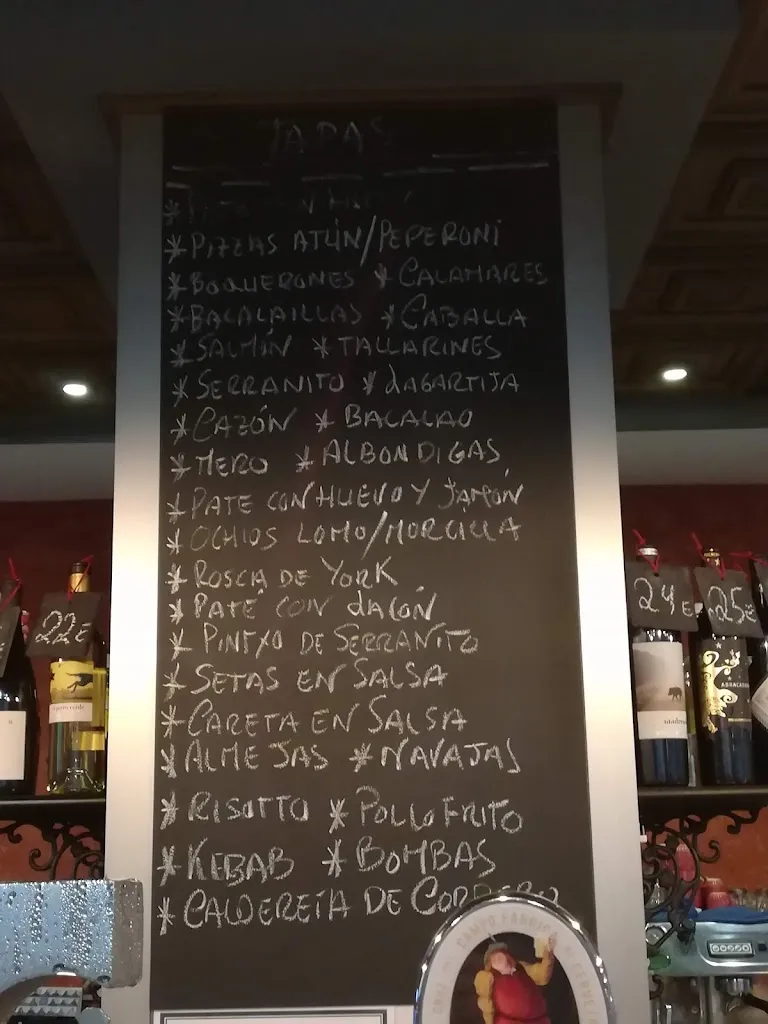 TAPAS
* PIZZAS ATÚN/PEPERONI
* BOQUERONES * CALAMARES
* BACALAILLAS * CABALLA
* SALMÓN * TALLARINES
* SERRANITO * LAGARTIJA
* CAZÓN * BACALAO
* MERO * ALBONDIGAS
* PATE CON HUEVO Y JAMÓN
* OCHIOS LOMO/MORCILLA
* ROSCA DE YORK
* PATÉ CON LACÓN
* PINTXO DE SERRANITO
* SETAS EN SALSA
* CARETA EN SALSA
* ALMEJAS * NAVAJAS
* RISOTTO * POLLO FRITO
* KEBAB * BOMBAS
* CALDERETA DE CORDERO
22€
24€
25€